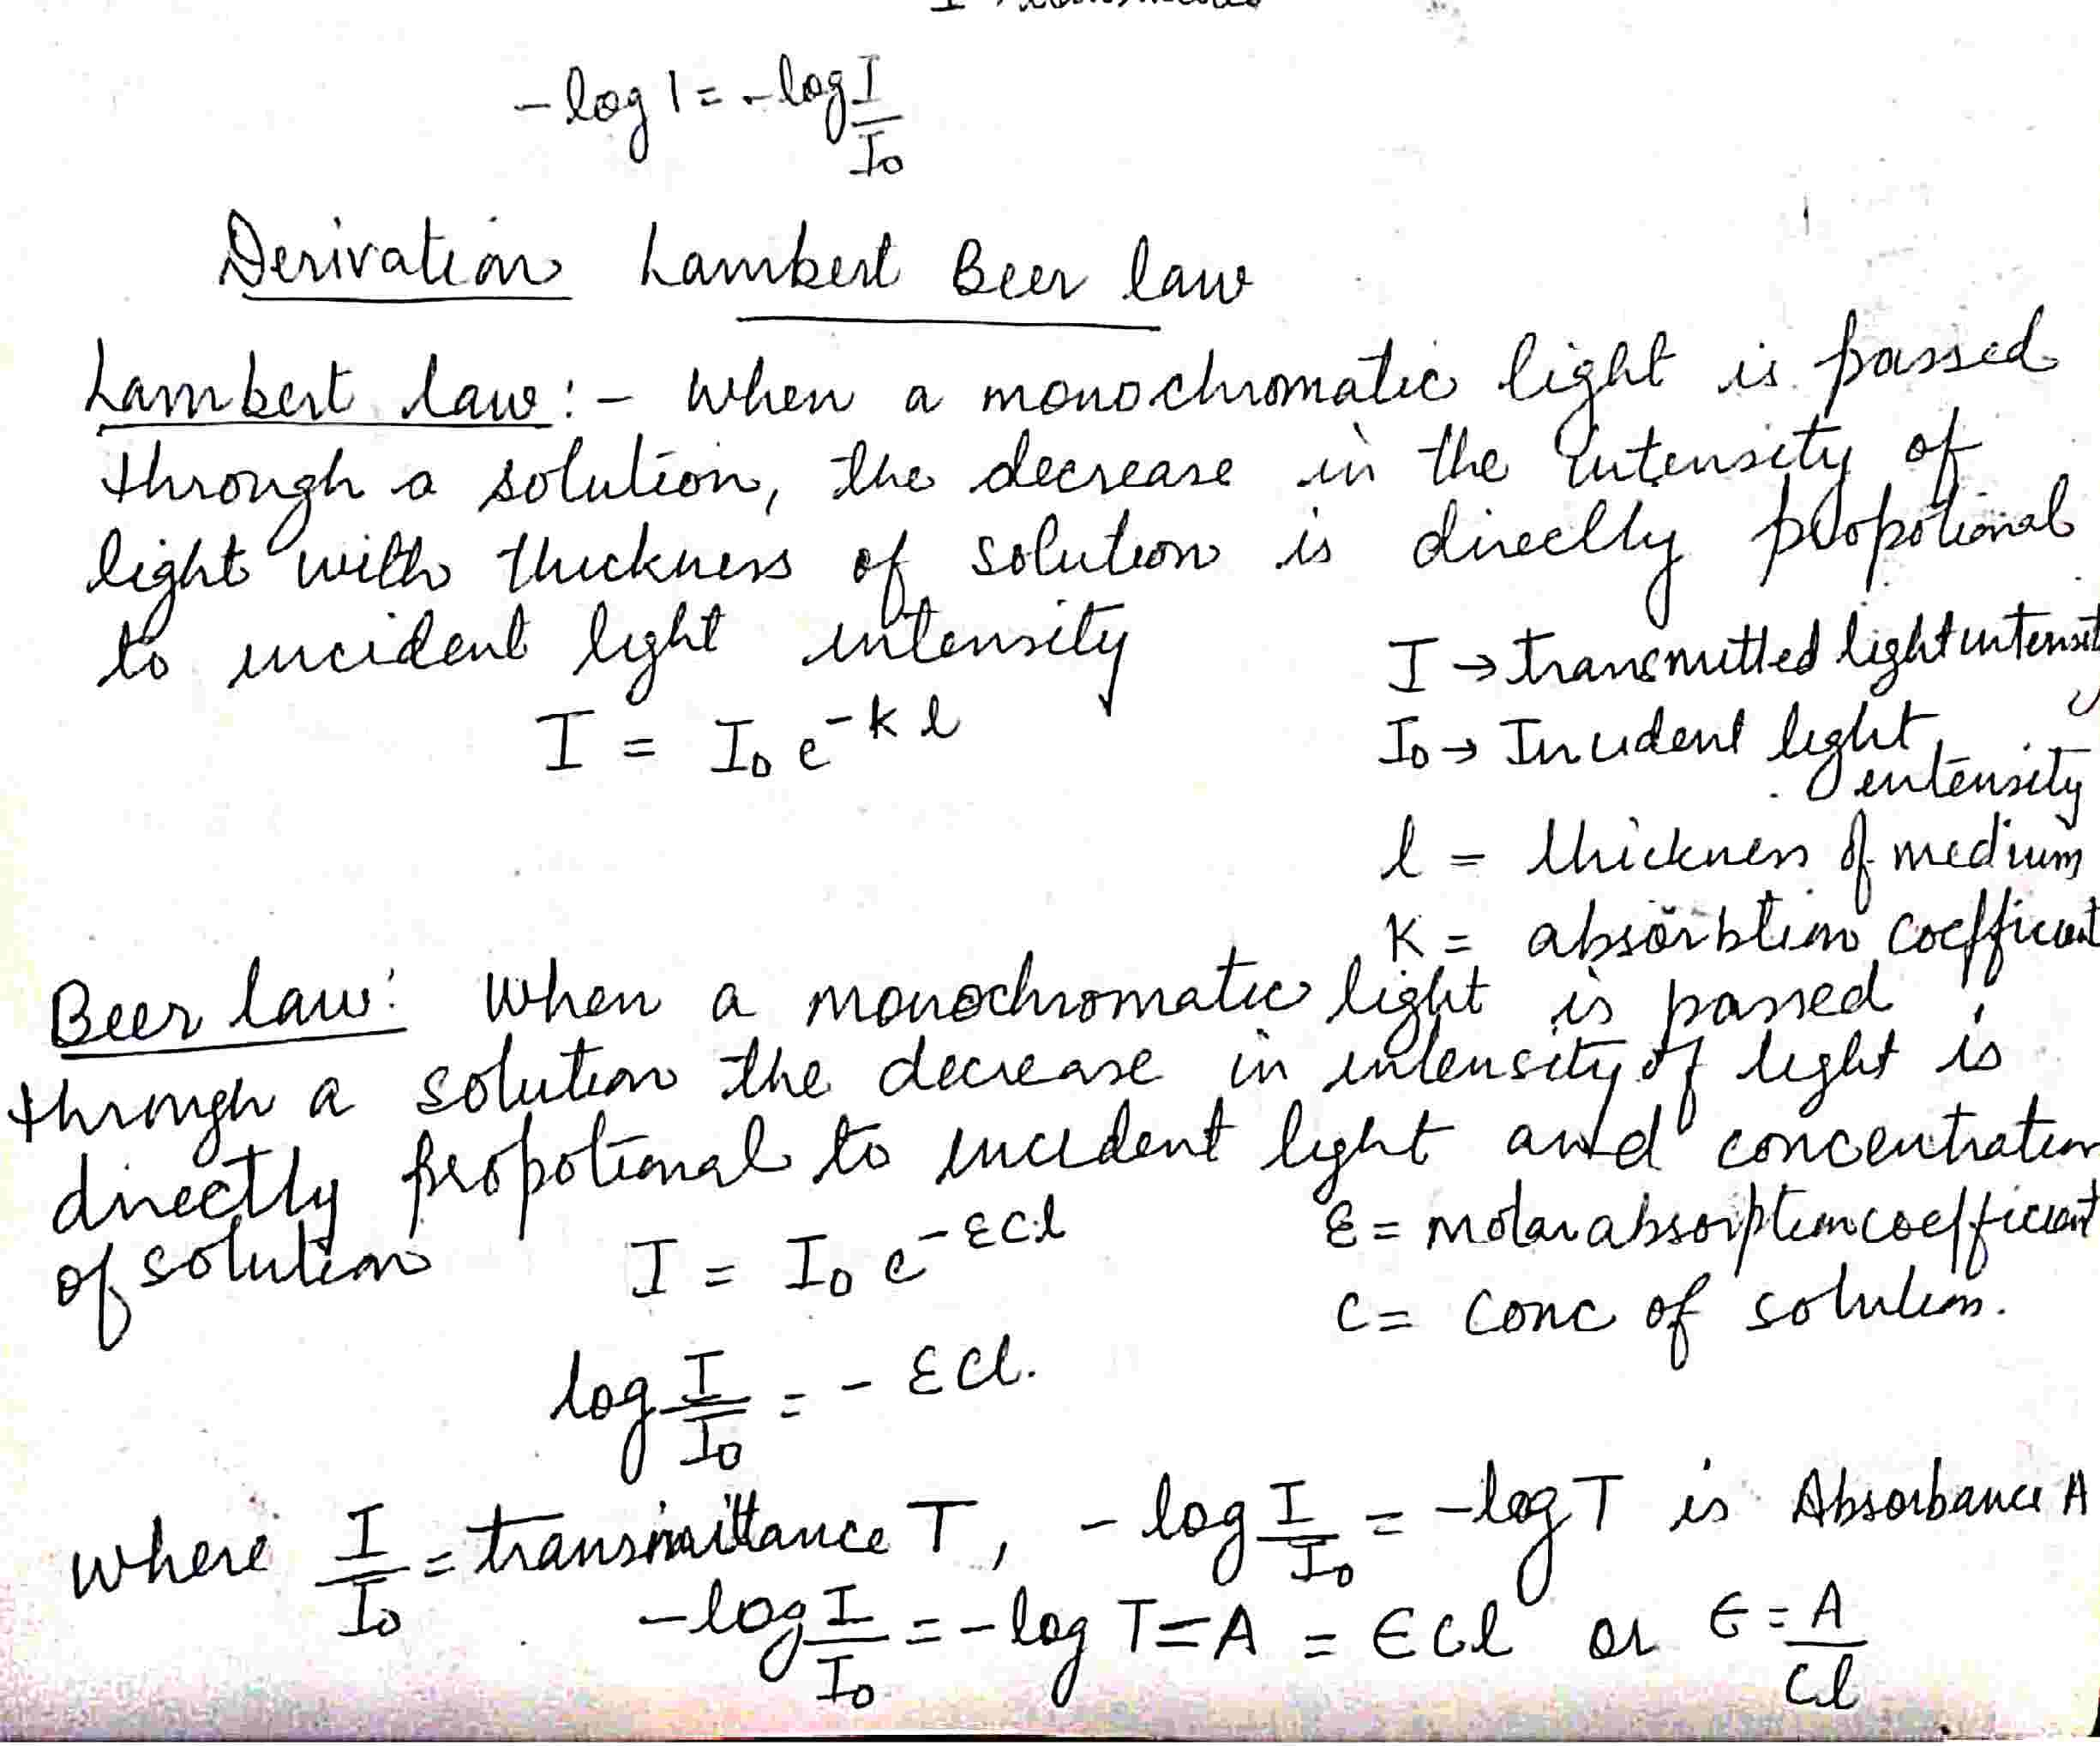 -log 1 = -log I/I₀
Derivation Lambert Beer law
Lambert law :- When a monochromatic light is passed
through a solution, the decrease in the intensity of
light with thickness of solution is directly propotional
to incident light intensity
I → transmitted light intensity
I = I₀ e^-kl
I₀ → Incident light intensity
l = thickness of medium
K = absorbtion coefficient
Beer law: When a monochromatic light is passed
through a solution the decrease in intensity of light is
directly propotional to incident light and concentration
of solution
I = I₀ e^-εcl
ε = molar absorption coefficient
C = Conc of solution.
log I/I₀ = - εcl.
where I/I₀ = transmittance T, - log I/I₀ = -log T is Absorbance A
-log I/I₀ = -log T = A = εcl or ε = A/cl